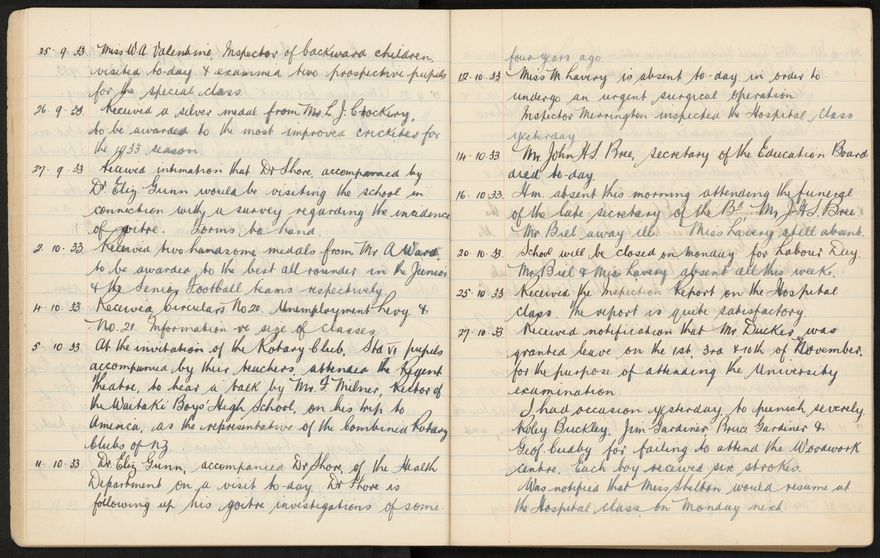 25. 9. 33. Miss W A Valentine, Inspector of backward children,
visited to-day & examined two prospective pupils
for the special class.
26. 9. 33. Received a silver medal from Mr L. J. Crockery,
to be awarded to the most improved cricketer for
the 1933 season
27. 9. 33 Received intimation that Dr Shore, accompanied by
Dr Eliz Gunn would be visiting the school in
connection with a survey regarding the incidence
of goitre. Forms to hand.
2. 10. 33. Received two handsome medals from Mr A Ward.
to be awarded to the best all rounder in the Junior
& the Senior Football teams respectively
4. 10. 33 Received Circulars No 20. Unemployment Levy &
No. 21. Information re size of classes
5. 10. 33 At the invitation of the Rotary Club. Std VI pupils
accompanied by their teachers, attended the Regent
Theatre, to hear a talk by Mr. F. Milner, Rector of
the Waitaki Boys' High School, on his trip to
America, as the representative of the Combined Rotary
Clubs of NZ
11. 10. 33. Dr. Eliz Gunn, accompanied Dr Shore, of the Health
Department on a visit to-day. Dr Shore is
following up his goitre investigations of some
four years ago.
12. 10. 33 Miss M Lavery is absent to-day in order to
undergo an urgent surgical operation.
Inspector Merrington inspected the Hospital Class
yesterday
14. 10. 33 Mr. John H S Bree, Secretary of the Education Board
died to-day.
16. 10. 33. Hm. absent this morning attending the funeral
of the late secretary of the Bd. Mr J. H S. Bree.
Mr Biel away ill. Miss Lavery still absent.
20. 10. 33 School will be closed on Monday for Labour Day.
Mr Biel & Miss Lavery absent all this week.
25. 10. 33 Received the Inspection Report on the Hospital
class. The report is quite satisfactory.
27. 10. 33 Received notification that Mr. Ducker, was
granted leave on the 1st, 3rd & 10th of November,
for the purpose of attending the University
examination
I had occasion yesterday to punish severely
Buckley, Jim Gardiner, Bruce Gardiner &
Geof. Cudby for failing to attend the Woodwork
Centre. Each boy received six strokes.
Was notified that Miss Skelton would resume at
the Hospital Class on Monday next